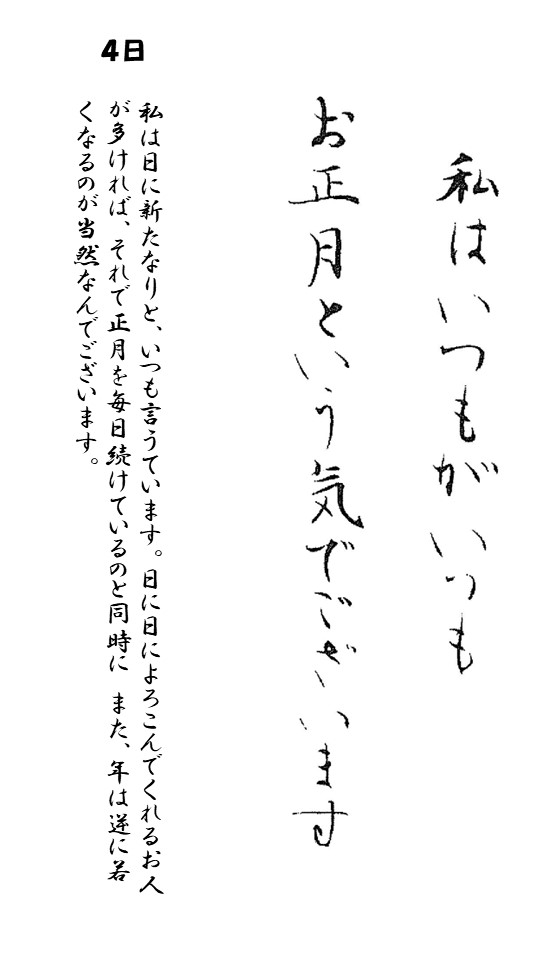 私はいつもがいつも
お正月という気でございます
4日
私は日に新たなりと、いつも言うています。日に日によろこんでくれるお人
が多ければ、それで正月を毎日続けているのと同時に　また、年は逆に若
くなるのが当然なんでございます。